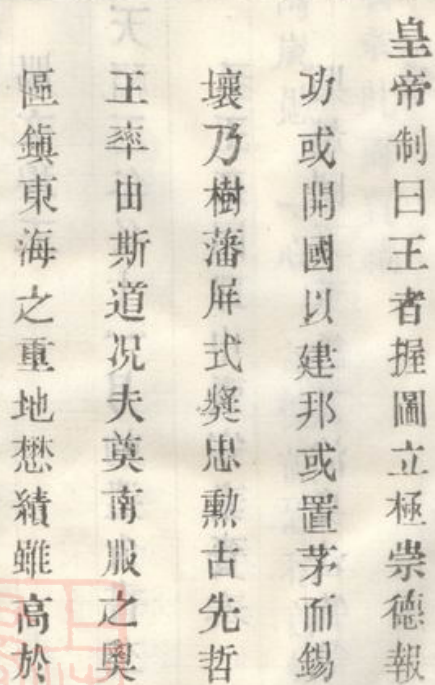 皇帝制曰王者握圖立極崇德報
功或開國以建邦或置茅而錫
壤乃樹藩屏式奬忠勲古先哲
王率由斯道况夫奠南服之奧
區鎮東海之重地懋績雖高於